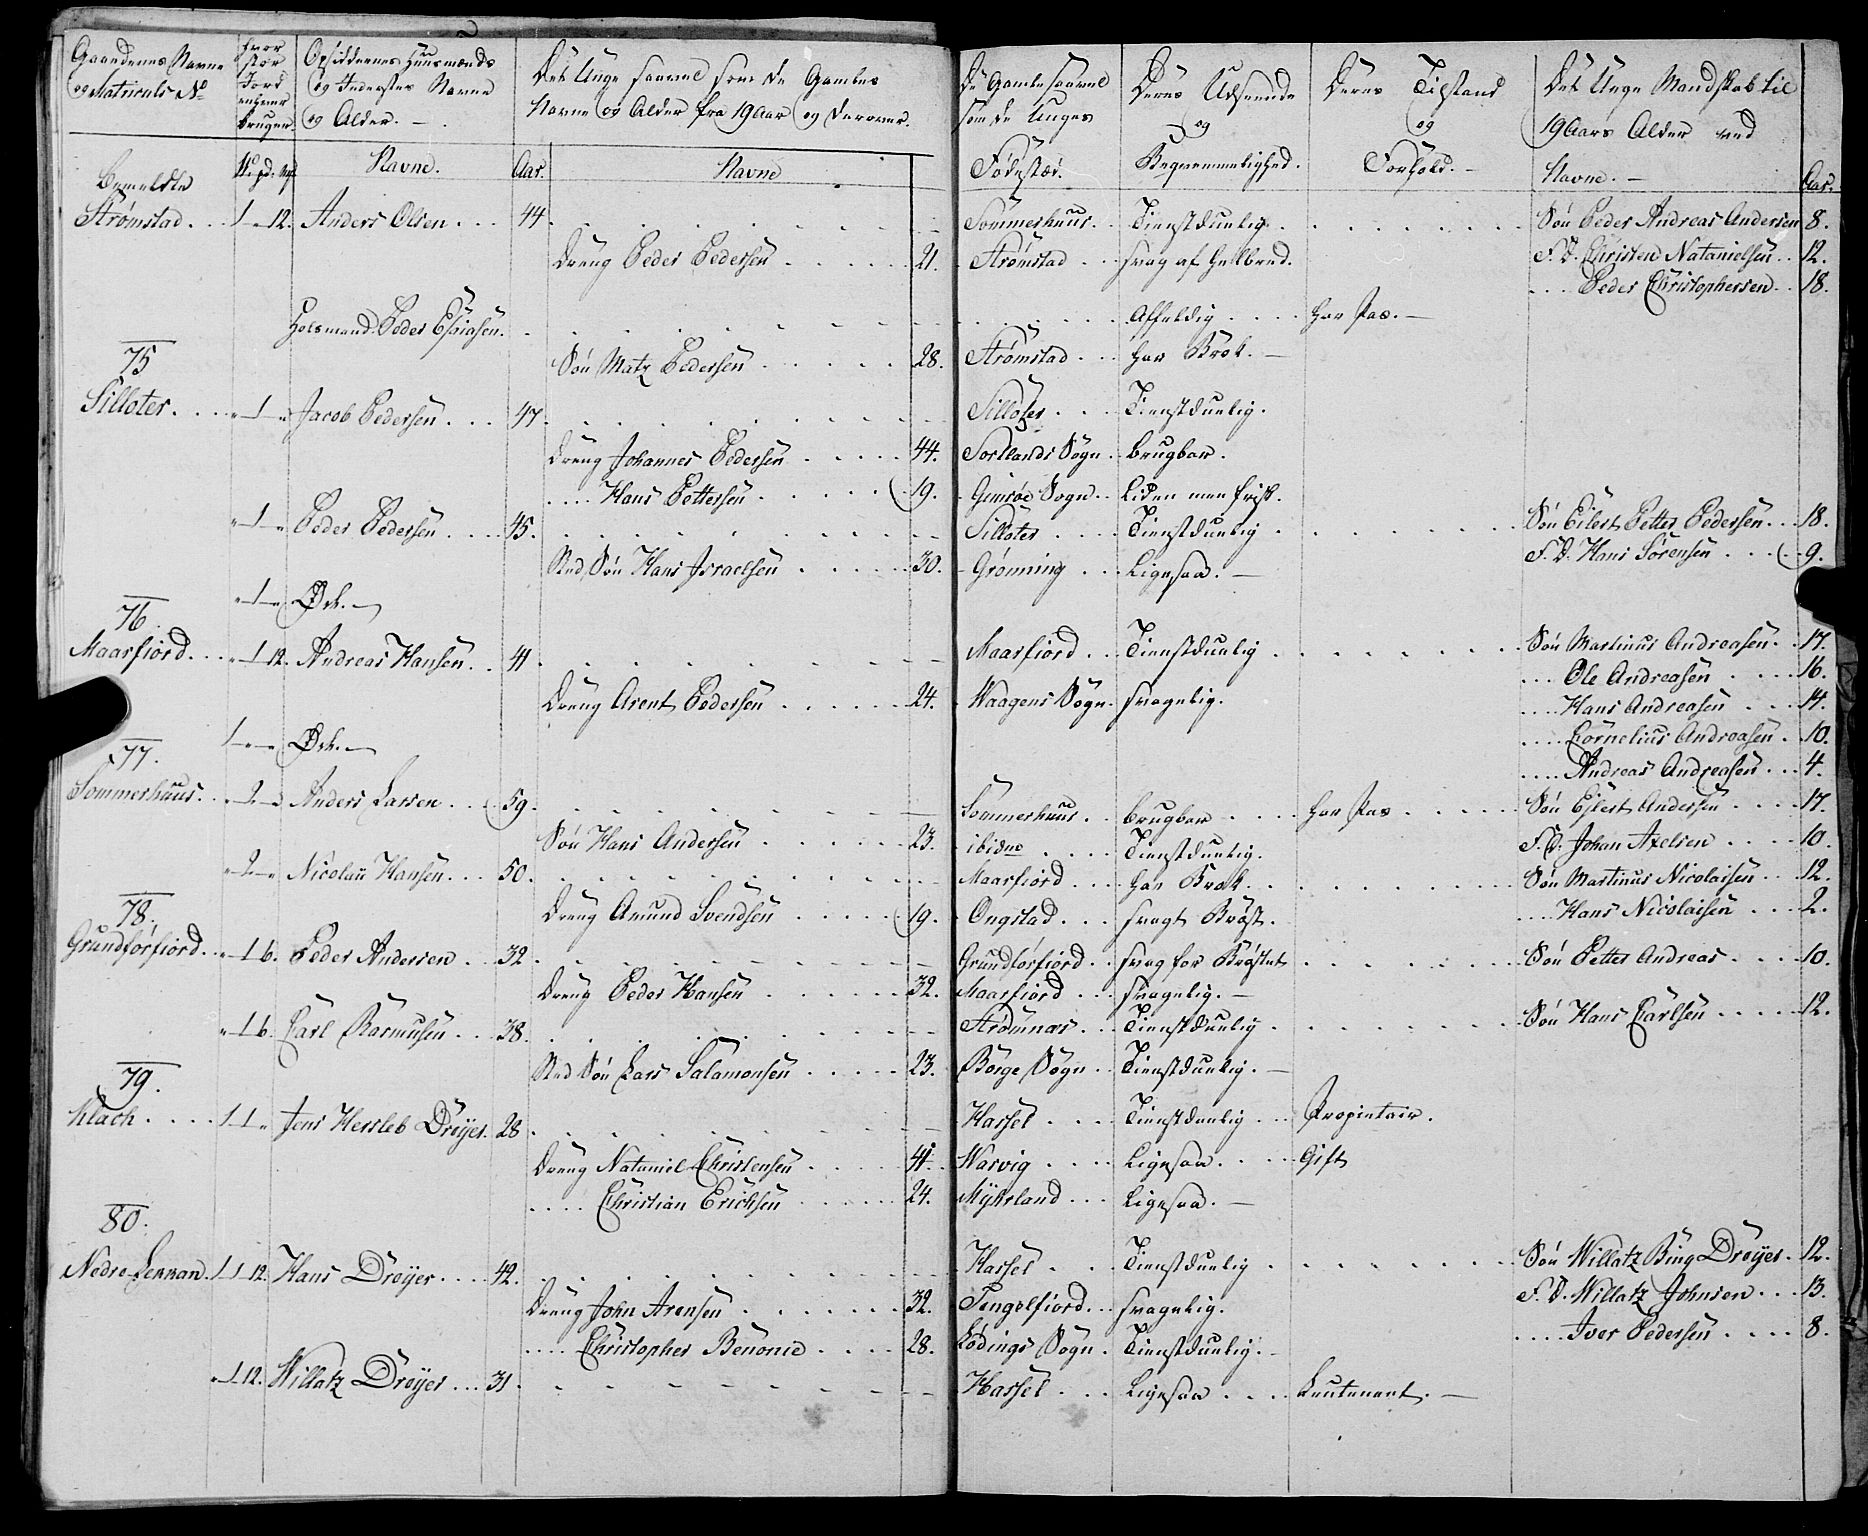 Gaardenes Navne
og Matriculs No
hvor
stor
Jord
enhver
bruger
Opsiddernes Huusmænds
og Inderstes Navne
og Alder. —
Det Unge saavel som de Gamles
Navne og Alder fra 19 Aar og derover.
De Gamle saavel
som de Unges
Fødested.
Deres Udseende
og
Beqvemmelighed.
Deres Tilstand
og
Forhold. —
Det Unge Mandskab til
19 Aars Alder ned
Navne. — Aar.
Navne. Aar. Navne
bemeldte
Strømstad . . 1 „ 12. Anders Olsen . . . 44 . Sommerhuus . . Tienstduelig . . . Søn Peder Andreas Andersen 8.
Dreng Peder Pedersen . . . 21. Strømstad . . svag af Helbred. F. D. Christen Natanielsen . . 12.
. . . Peder Christophersen . . 18.
Peder Esaiasen . . . Affældig . . . har Pas. —
Søn Matz Pedersen . . . 28. Strømstad . . har Brok. —
75
Silloter . . . „ 1 „ Jacob Pedersen . . . 47 . Silloter . . . Tienstduelig.
Dreng Johannes Pedersen . . . 44. Sortlands Sogn . brugbar.
. . . Hans Pettersen . . . 19. Gimsøe Sogn . . Liden men frisk.
„ 1 „ Peder Pedersen . . . 45. Silloter . . . Tienstduelig . . . Søn Eilert Petter Pedersen . . 18.
F. D. Hans Sørensen . . . 9.
Sted Søn Hans Israelsen . . . 30. Grønning . . . Ligesaa. —
„ 1 „ Øde. —
76.
Maarfiord . . . „ 1 12. Andreas Hansen . . 41 . Maarfiord . . . Tienstduelig . . . Søn Martinus Andreasen . . 17.
. . . Ole Andreasen . . . 16.
Dreng Arent Pedersen . . . 24. Waagens Sogn . svagelig. . . . Hans Andreasen . . . 14.
1 „ „ Øde. — . . . Cornelius Andreasen . 10.
. . . Andreas Andreasen . . . 4.
77.
Sommerhuus . . „ 2 „ Anders Larsen . . . 59. Sommerhuus . . brugbar . . . har Pas . . . Søn Ejlert Andersen . . . 17.
Søn Hans Andersen . . . 23. ibidm . . . Tienstduelig. F. D. Johan Axelsen . . . 10.
„ 2 „ Nicolau Hansen . . . 50. Maarfiord . . . har Brok . . . Søn Martinus Nicolaisen . . 12.
Dreng Amund Svendsen . . . 19. Ongstad . . . svagt Bryst. . . . Hans Nicolaisen . . . 2.
78.
Grundforfiord . . „ 1 6. Peder Andersen . . 32 . Grundforfiord . . svag for Brystet . . . Søn Petter Andreas . . . 10.
Dreng Peder Hansen . . . 32. Maarfiord . . . svagelig. —
„ 1 6. Carl Rasmusen . . . 38. Strømnæs . . . Tienstduelig . . . Søn Hans Carlsen . . . 12.
Sted Søn Lars Salamonsen . . . 23. Borge Sogn . . Tienstduelig. —
79.
Klack . . . . 1 1 „ Jens Hersleb Dreyer . 28 . Hassel . . . Tienstduelig . . . Propietair.
Dreng Nataniel Christensen . . . 41. Warvig . . . Ligesaa . . . Gift
. . . Christian Erichsen . . . 24. Myhrland . . . Ligesaa. —
80.
Nedre Lennan . 1 1 12. Hans Dreyer . . . 42. Hassel . . . Tienstduelig . . . Søn Willatz Bing Dreyer . 12.
Dreng John Arensen . . . 32. Tengelfiord . . . svagelig. F. D. Willatz Johnsen . . . 13.
. . . Christopher Benonie . . . 28. Lødings Sogn . Tienstduelig. — . . . Iver Pedersen . . . 8.
„ 1 12. Willatz Dreyer . . . 31 . Hassel . . . Ligesaa . . . Leutenant. —